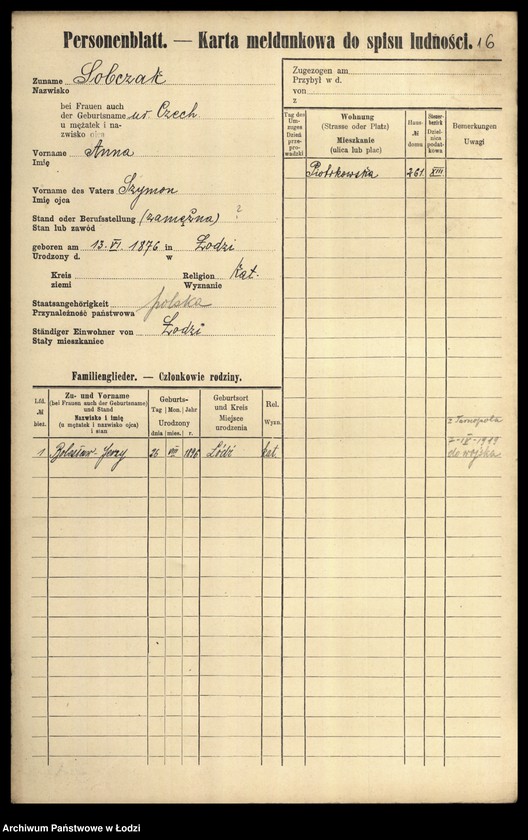 Personenblatt. — Karta meldunkowa do spisu ludności. 16
Zuname Sobczak
Nazwisko
bei Frauen auch
der Geburtsname ur. Czech
u mężatek i na-
zwisko ojca
Vorname Anna
Imię
Vorname des Vaters Szymon
Imię ojca
Stand oder Berufsstellung (zamężna) ?
Stan lub zawód
geboren am 13. VI. 1876 in Łodzi
Urodzony d. w
Kreis Religion kat.
ziemi Wyznanie
Staatsangehörigkeit polska
Przynależność państwowa
Ständiger Einwohner von Łodzi
Stały mieszkaniec
Zugezogen am
Przybył w d.
von
z
Tag des Um-zuges
Dzień prze-prowadzki
Wohnung
(Strasse oder Platz)
Mieszkanie
(ulica lub plac)
Haus-
№
domu
Steuer-bezirk
Dziel-nica podat-kowa
Bemerkungen
Uwagi
Piotrkowska 261 XIII
Familienglieder. — Członkowie rodziny.
Lfd.
№
bież.
Zu- und Vorname
(bei Frauen auch der Geburtsname)
und Stand
Nazwisko i imię
(u mężatek i nazwisko ojca)
i stan
Geburts-
Tag | Mon. | Jahr
Urodzony
dnia | mies. | r.
Geburtsort
und Kreis
Miejsce
urodzenia
Rel.
Wyzn.
1 Bolesław Jerzy 26 VIII 1896 Łódź kat.
z Tarnopola
7-IV-1919
do wojska
Archiwum Państwowe w Łodzi